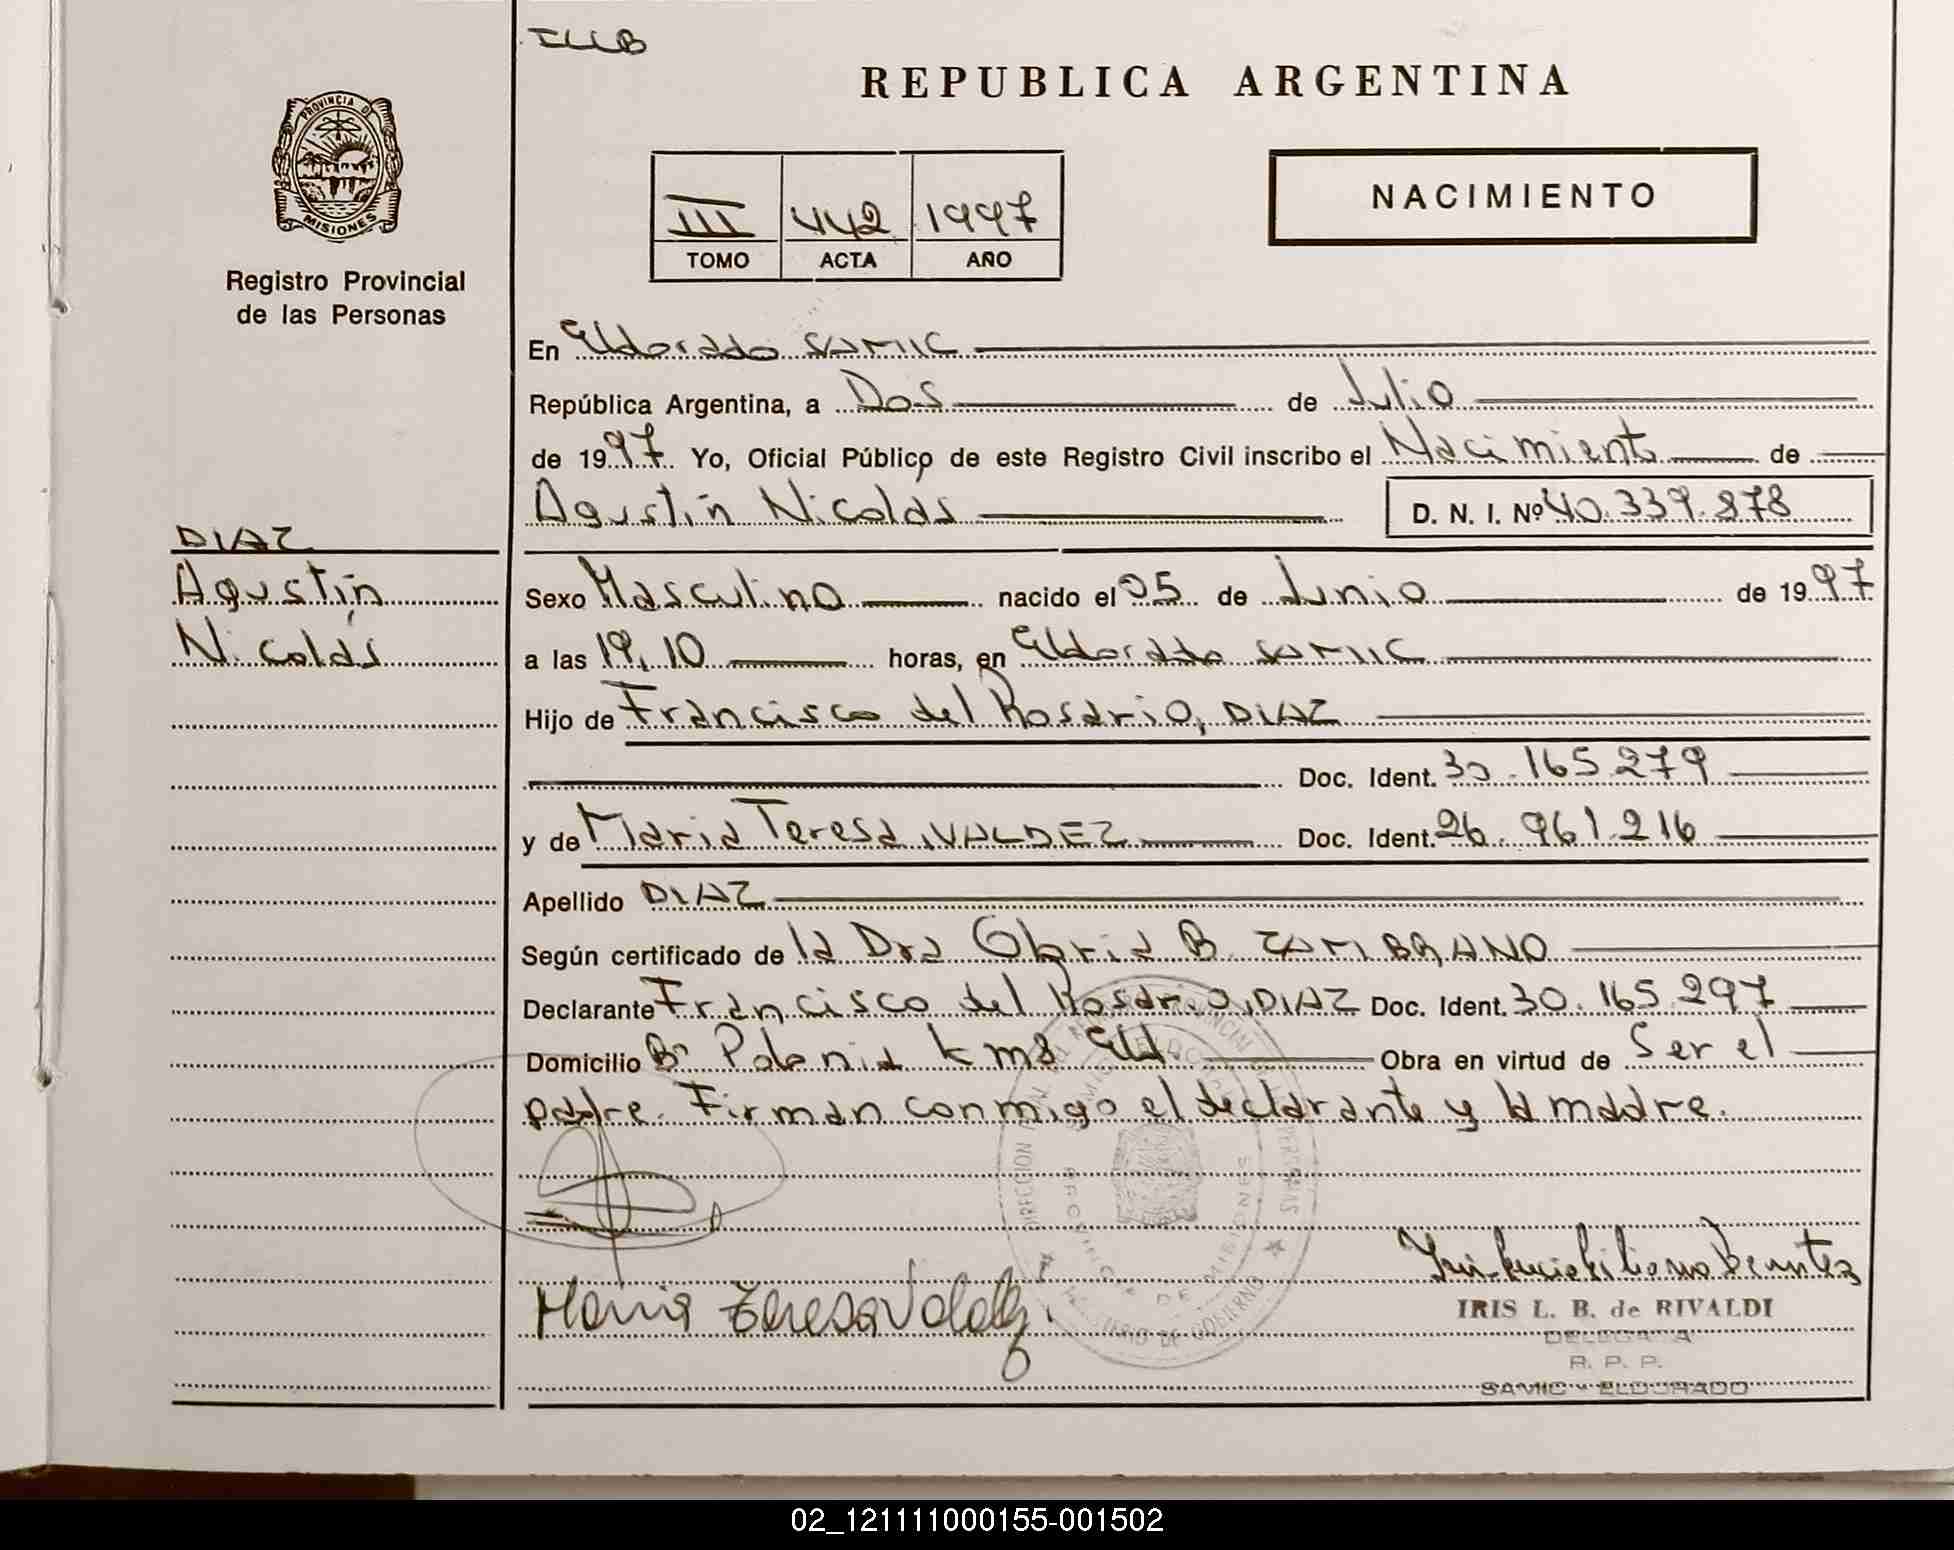 ILLB
REPUBLICA ARGENTINA
PROVINCIA DE
MISIONES
Registro Provincial
de las Personas
III 442 1997
TOMO ACTA AÑO
NACIMIENTO
En Eldorado SAMIC
República Argentina, a Dos de Julio
de 1997 Yo, Oficial Público de este Registro Civil inscribo el Nacimiento de
Agustín Nicolás D. N. I. Nº 40.339.878
DIAZ
Agustín
Nicolás
Sexo Masculino nacido el 05 de Junio de 1997
a las 19,10 horas, en Eldorado SAMIC
Hijo de Francisco del Rosario, DIAZ
Doc. Ident. 30.165.279
y de Maria Teresa, VALDEZ Doc. Ident. 26.961.216
Apellido DIAZ
Según certificado de la Dra Gloria B. ZAMBRANO
Declarante Francisco del Rosario, DIAZ Doc. Ident. 30.165.297
Domicilio Bº Polonia km8 Eld. Obra en virtud de Ser el
padre. Firman conmigo el declarante y la madre.
Maria Teresa Valdez.
IRIS L. B. de RIVALDI
DELEGADA
R. P. P.
SAMIC - ELDORADO
PROVINCIA DE MISIONES
02_121111000155-001502